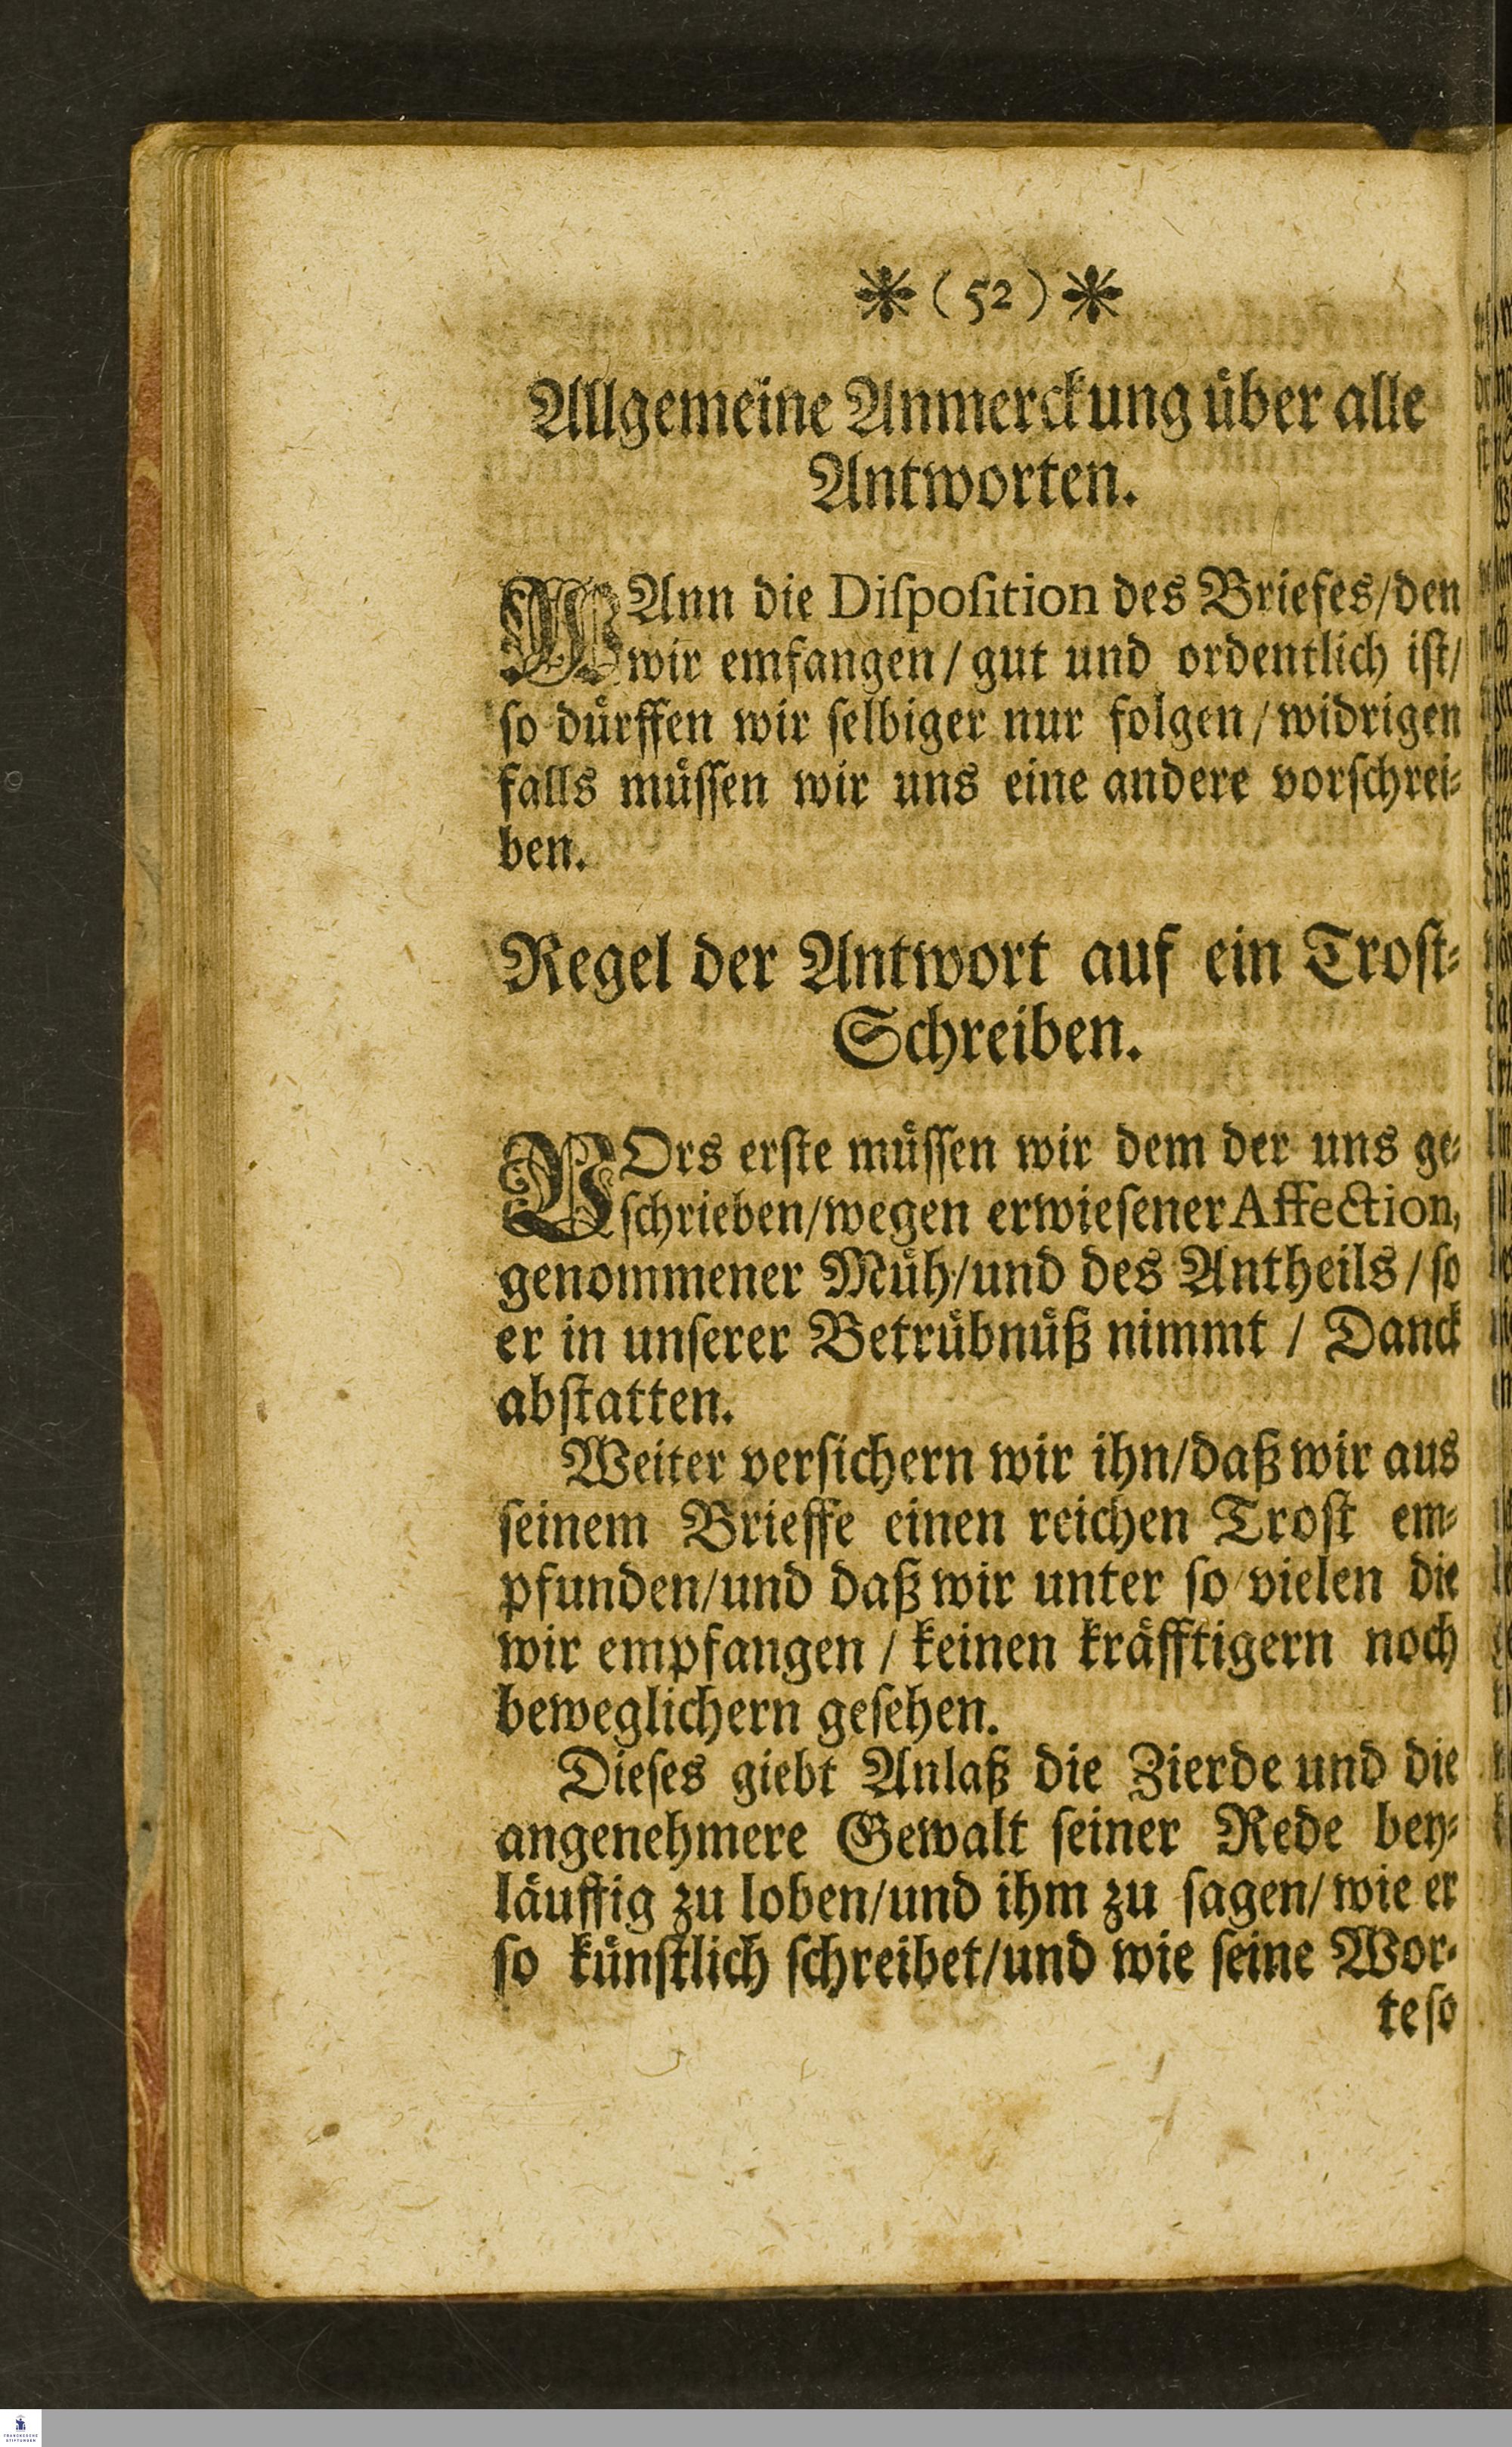 ❋ ( 52 ) ❋
Allgemeine Anmerckung uͤber alle
Antworten.
WAnn die Diſpoſition des Briefes/den
wir emfangen/gut und ordentlich iſt/
ſo duͤrffen wir ſelbiger nur folgen/widrigen
falls muͤſſen wir uns eine andere vorſchrei⸗
ben.
Regel der Antwort auf ein Troſt⸗
Schreiben.
VOrs erſte muͤſſen wir dem der uns ge⸗
ſchrieben/wegen erwieſener Affection,
genommener Muͤh/und des Antheils/ſo
er in unſerer Betruͤbnuͤß nimmt / Danck
abſtatten.
Weiter verſichern wir ihn/daß wir aus
ſeinem Brieffe einen reichen Troſt em⸗
pfunden/und daß wir unter ſo vielen die
wir empfangen / keinen kraͤfftigern noch
beweglichern geſehen.
Dieſes giebt Anlaß die Zierde und die
angenehmere Gewalt ſeiner Rede bey⸗
laͤuffig zu loben/und ihm zu ſagen/wie er
ſo kuͤnſtlich ſchreibet/und wie ſeine Wor⸗
te ſo